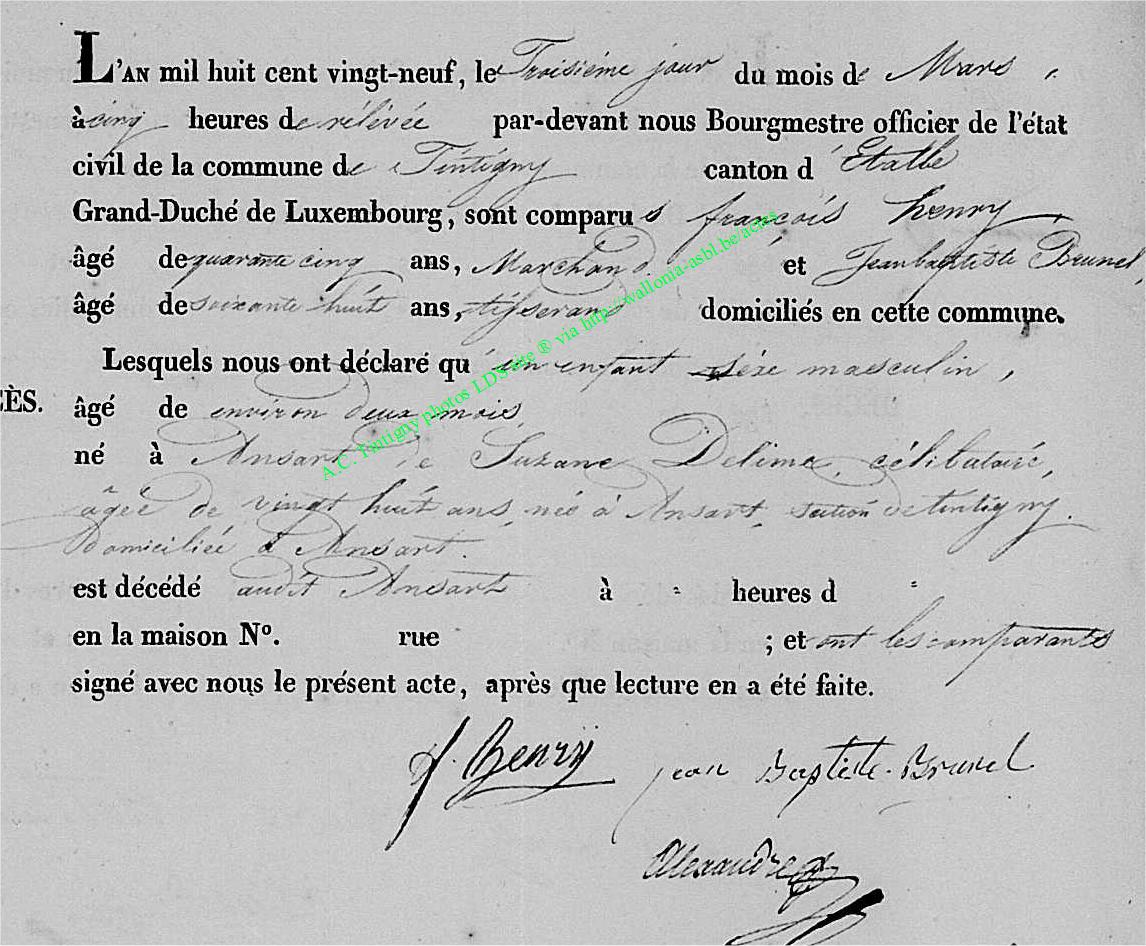 L'AN mil huit cent vingt-neuf, le Troisiéme jour du mois de Mars
à cinq heures de rélévée par-devant nous Bourgmestre officier de l'état
civil de la commune de Tintigny canton d'Etalle
Grand-Duché de Luxembourg, sont comparus françois henry
âgé de quarante cinq ans, Marchand et Jeanbaptiste Brunel,
âgé de soixante huit ans, tisserand domiciliés en cette commune.
Lesquels nous ont déclaré qu'un enfant séxe masculin,
CÈS.
âgé de environ deux mois,
né à Ansart de Suzane Delime, célibataire,
âgée de vingt huit ans, née à Ansart, section de tintigny.
domiciliée à Ansart.
est décédé audit Ansart à " heures d "
en la maison N°. rue ; et ont les comparants
signé avec nous le présent acte, après que lecture en a été faite.
f. Henry jean Baptiste Brunel
Alexandre
A.C. Tintigny photos LDS site ® via http://wallonia-asbl.be/actes